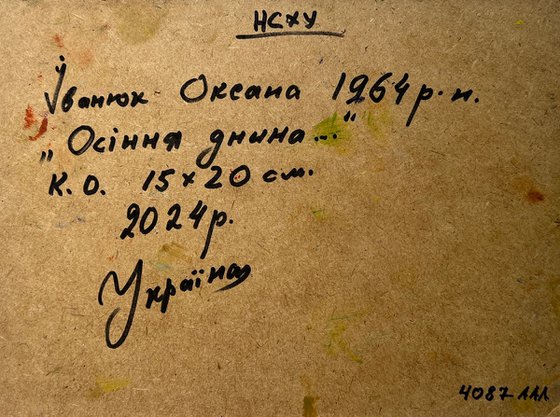 НСХУ
Іванюк Оксана 1964 р.н.
„Осіння днина..."
к.о. 15×20 см.
2024р.
Україна
4087 ААА